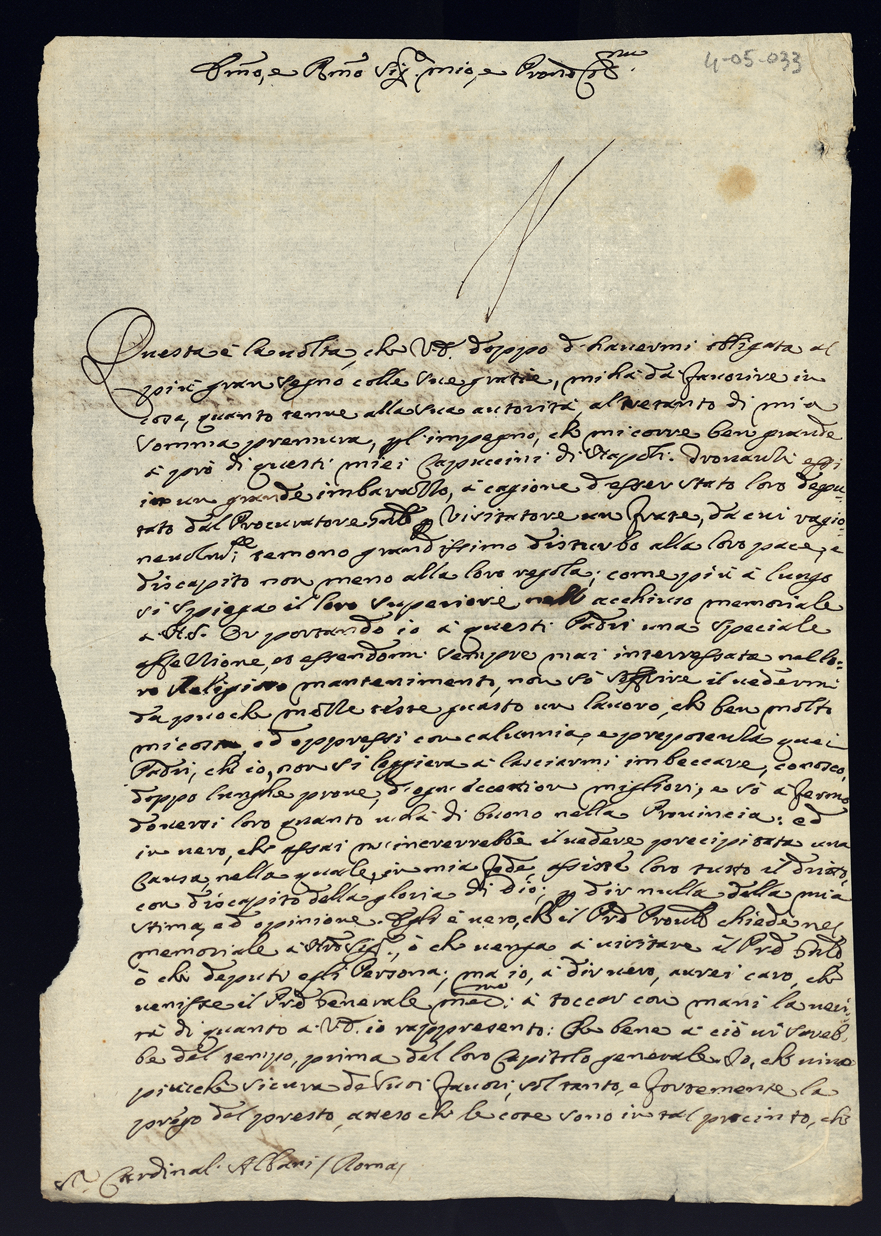 Emo, e Rmo Sig.r mio, e Prone
4-05-033
Questa è la uolta, che V.E. doppo d'hauermi obligata al
più gran segno colle sue gratie, mi hà dà fauorire in
cosa, quanto tenue alla sua autorità, altretanto di mia
somma premura, pl'impegno, che mi corre ben grande
à prò di questi miei Capuccini di Napoli. Trouansi essi
in un grande imbarazzo, à cagione d'esser stato loro depu-
tato dal Procuratore Gnle p Visitatore un Frate, da cui ragio-
neuolm.te temono grandissimo disturbo alla loro pace, e
discapito non meno alla loro regola; come più à lungo
si spiega il loro Superiore nell acchiuso memoriale
à V.E. Or portando io à questi Padri una speciale
affettione, et essendomi sempre mai interessata nel lo-
ro Religioso mantenimento, non sò soffrire il uedermi
da puoche molle teste guasto un lauoro, che ben molto
mi costa, ed oppressi con calunnia, e prepotenza quei
Padri, che io, non sì leggiera à lasciarmi imbeccare, conosco,
doppo lunghe proue, d'ogn'eccettion migliori, e sò à fermo
douersi loro quanto u'hà di buono nella Prouincia: ed
in uero, che assai m'increscerebbe il uedere precipitata una
causa, nella quale, in mia fede, assiste loro tutto il dritto,
con discapito della gloria di Dio; p dir nulla della mia
stima, ed opinione. Egli è uero, che il Pre Proule chiede nel
memoriale à , ò che uenga à uisitare il Pre Gnle
ò che deputi egli Persona; ma io, à dir uero, aurei caro, che
venisse il Pre Generale med.mo à toccar con mani la veri-
tà di quanto à V.E. io rappresento: Che bene à ciò ui sareb-
be del tempo, prima del loro Capitolo generale. Io, che uiuo
più che sicura de suoi fauori, sol tanto, e fortemente la
prego del presto, atteso che le cose sono in tal procinto, che
S.r Cardinal Albani / Roma/